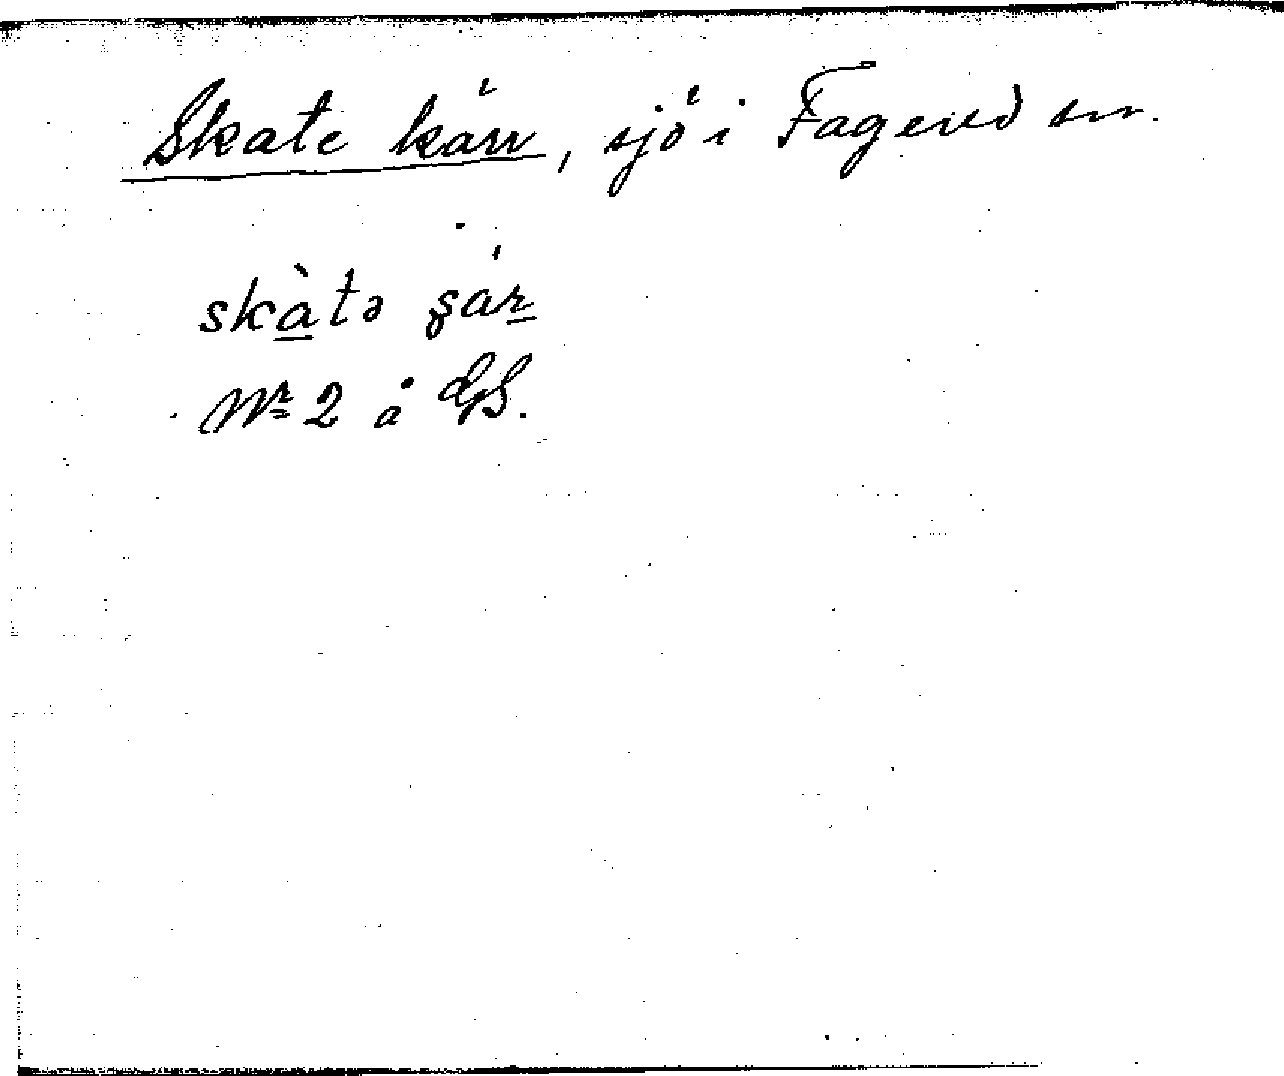 Skate kärr, sjö i Fagered sn.
skàtə şár
Nr 2 å GS.